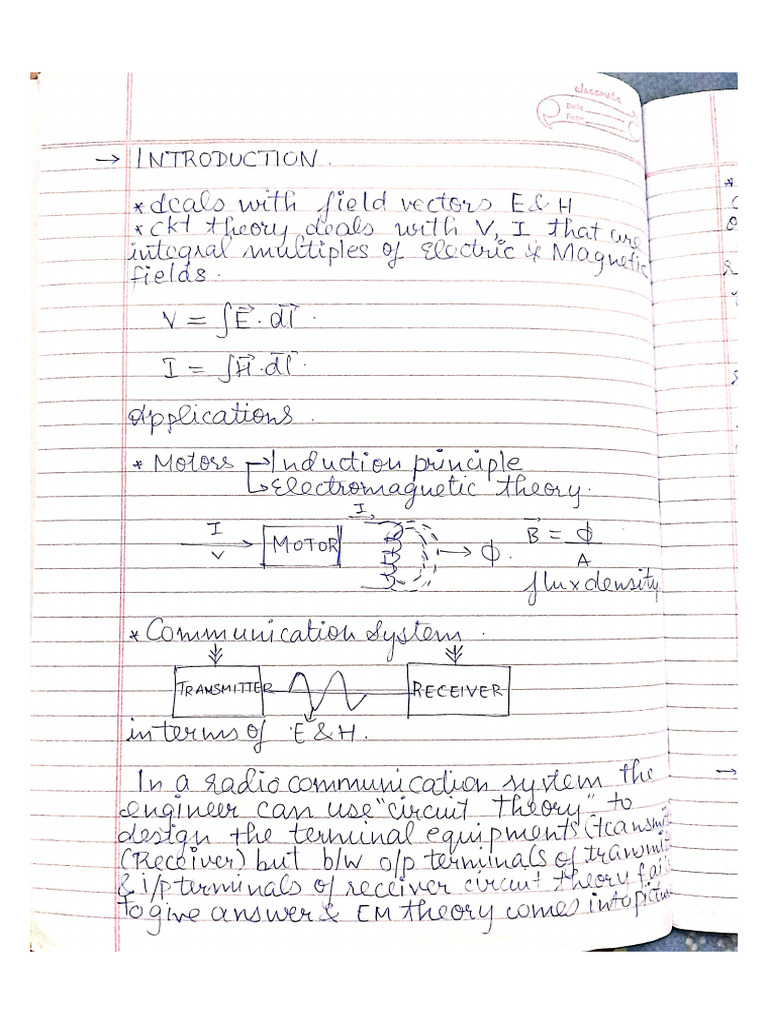 classmate
Date
Page
→ INTRODUCTION.
* deals with field vectors E & H
* ckt theory deals with V, I that are
integral multiples of Electric & Magnetic
fields.
V = ∫E⃗ . dl⃗ .
I = ∫H⃗ . dl⃗ .
Applications.
* Motors → Induction principle
↳ Electromagnetic theory.
I
V
MOTOR
I
→ Φ.
B⃗ = Φ
A
flux density
* Communication System.
TRANSMITTER
RECEIVER
in terms of E & H.
In a radio communication system the
engineer can use "circuit theory" to
design the terminal equipments (transmi
(Receiver) but b/w o/p terminals of transmi
& i/p terminals of receiver circuit theory fai
to give answer & EM theory comes into pictu